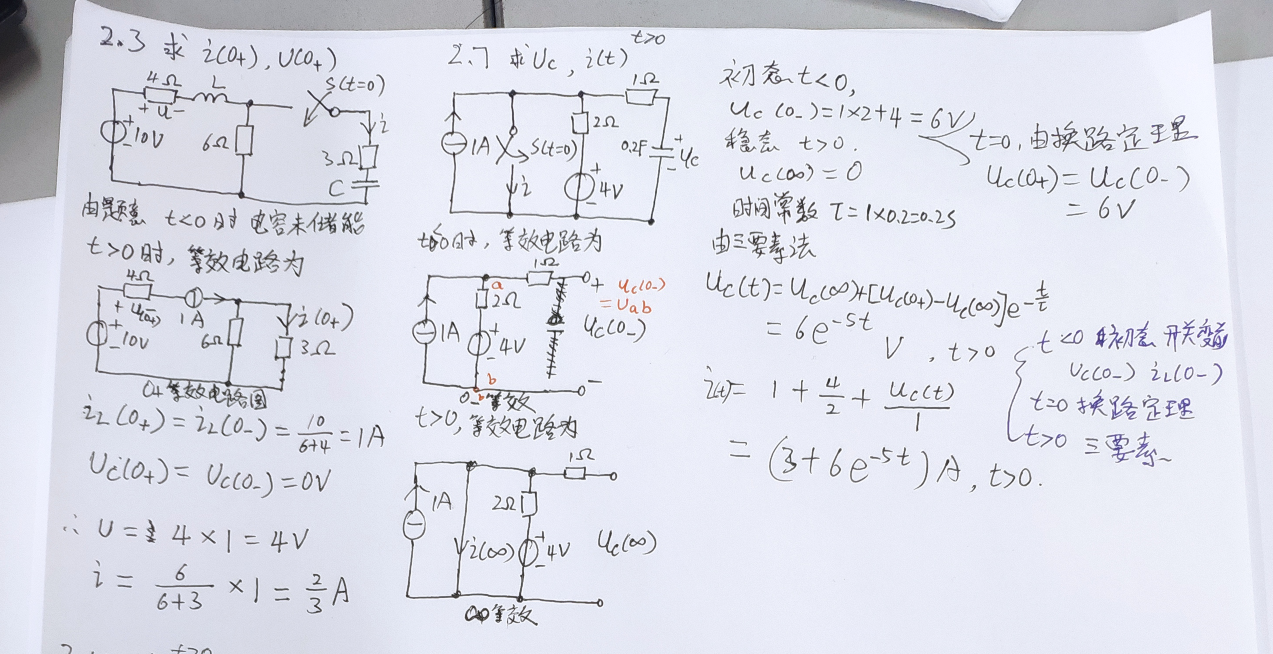 2.3 求 i(0+), U(0+)
4Ω L S(t=0)
+ u -
+ 10V - 6Ω i
3Ω
C
由题意 t<0时 电容未储能
t>0时, 等效电路为
4Ω
+ U(0+) - 1A i(0+)
+ 10V - 6Ω 3Ω
0+等效电路图
iL(0+) = iL(0-) = 10/(6+4) = 1A
Uc(0+) = Uc(0-) = 0V
∴ U = 4×1 = 4V
i = 6/(6+3) ×1 = 2/3 A
t>0
2.7 求Uc, i(t) t>0
1Ω
1A S(t=0) 2Ω 0.2F + uc -
i + 4V -
t<0时, 等效电路为
1Ω
a 2Ω + uc(0-)
= Uab
1A + 4V - Uc(0-)
b -
0-等效
t>0, 等效电路为
1Ω
1A 2Ω
i(∞) + 4V - Uc(∞)
∞等效
初态 t<0,
uc(0-) = 1×2+4 = 6V
稳态 t>0.
uc(∞) = 0
t=0, 由换路定理
uc(0+) = uc(0-)
= 6V
时间常数 τ = 1×0.2=0.2s
由三要素法
uc(t) = uc(∞)+[uc(0+)-uc(∞)]e^(-t/τ)
= 6e^(-5t) V, t>0
i(t)= 1 + 4/2 + uc(t)/1
= (3+6e^(-5t)) A, t>0.
t<0 初态 开关变前
Uc(0-) iL(0-)
t=0 换路定理
t>0 三要素~